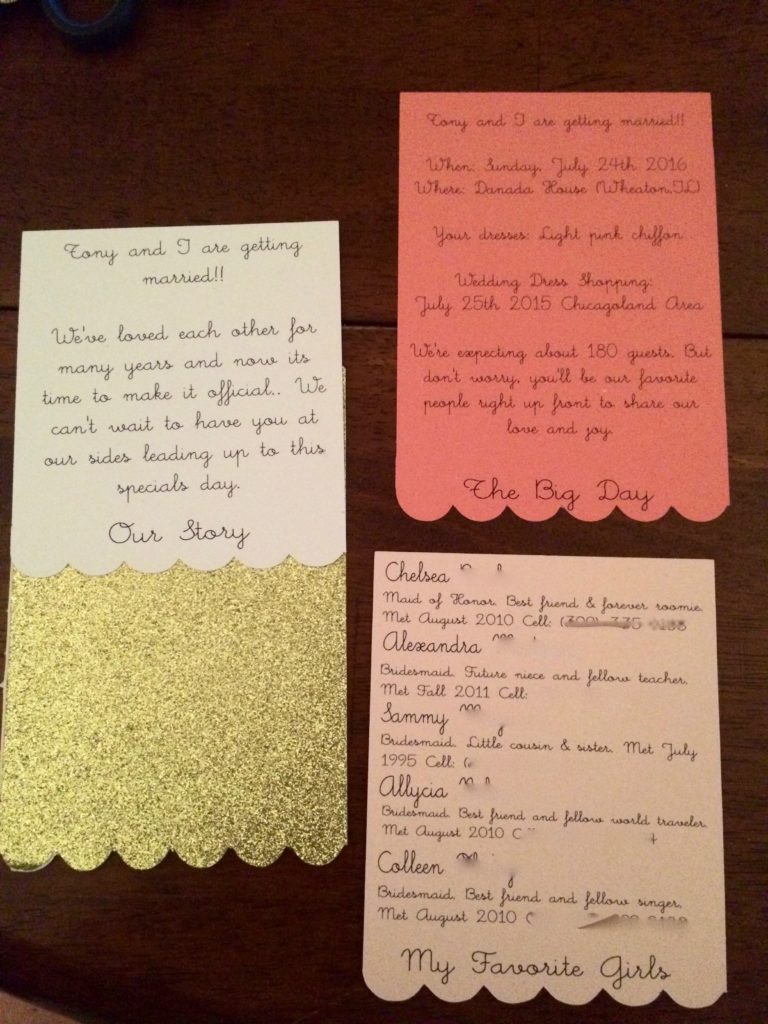 Tony and I are getting
married!!
We've loved each other for
many years and now its
time to make it official.. We
can't wait to have you at
our sides leading up to this
specials day.
Our Story
Tony and I are getting married!!
When: Sunday, July 24th 2016
Where: Danada House (Wheaton,IL)
Your dresses: Light pink chiffon
Wedding Dress Shopping:
July 25th 2015 Chicagoland Area
We're expecting about 180 guests. But
don't worry, you'll be our favorite
people right up front to share our
love and joy.
The Big Day
Chelsea
Maid of Honor. Best friend & forever roomie.
Met August 2010 Cell:
Alexandra
Bridesmaid. Future niece and fellow teacher.
Met Fall 2011 Cell:
Sammy
Bridesmaid. Little cousin & sister. Met July
1995 Cell:
Allycia
Bridesmaid. Best friend and fellow world traveler.
Met August 2010
Colleen
Bridesmaid. Best friend and fellow singer.
Met August 2010
My Favorite Girls